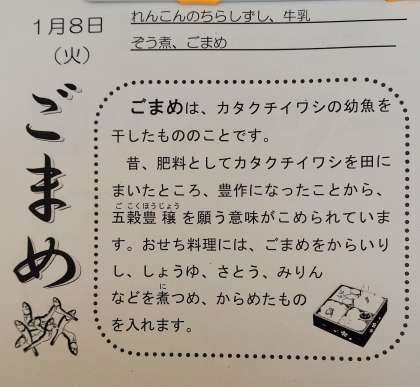 1月8日
(火)
れんこんのちらしずし、牛乳
ぞう煮、ごまめ
ごまめ
ごまめは、カタクチイワシの幼魚を
干したもののことです。
昔、肥料としてカタクチイワシを田に
まいたところ、豊作になったことから、
五穀豊穣を願う意味がこめられていま
ごこくほうじょう
す。おせち料理には、ごまめをからいり
し、しょうゆ、さとう、みりん
などを煮つめ、からめたもの
に
を入れます。